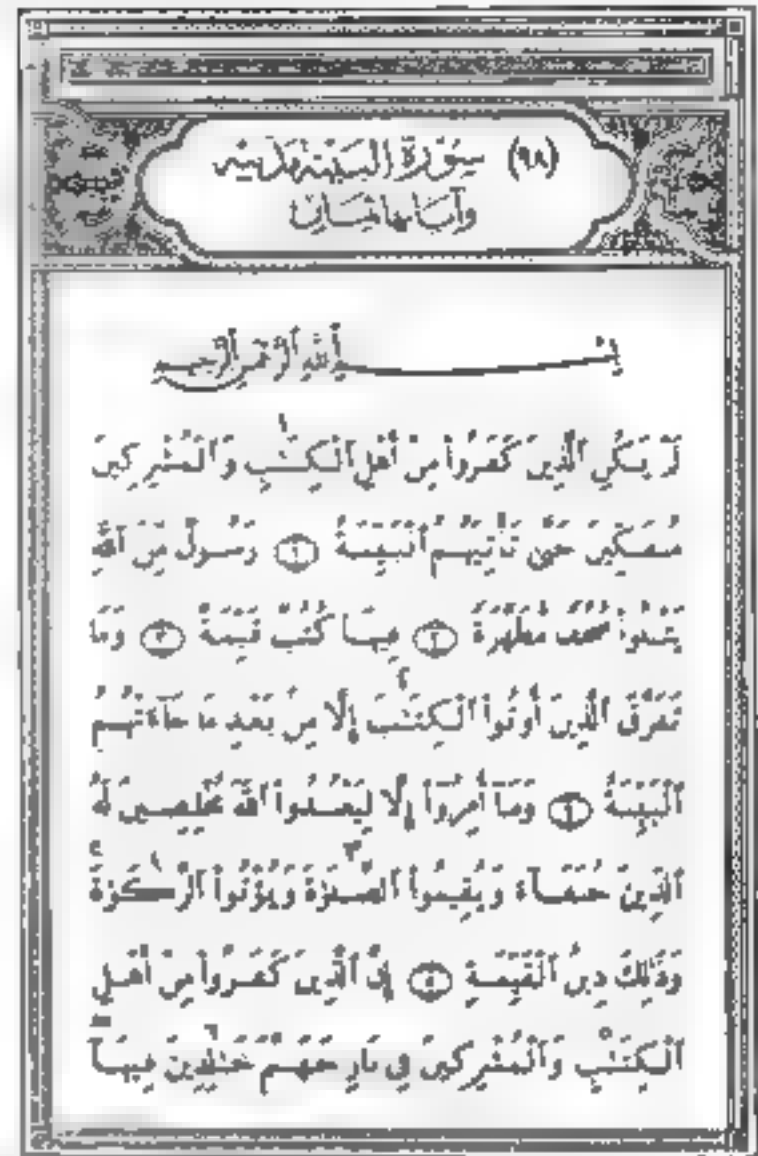 (٩٨) سورة البينة مدنية
وآياتها ثمان
بسم ٱللَّهِ ٱلرَّحْمَٰنِ ٱلرَّحِيمِ
لَمْ يَكُنِ ٱلَّذِينَ كَفَرُوا۟ مِنْ أَهْلِ ٱلْكِتَٰبِ وَٱلْمُشْرِكِينَ
مُنفَكِّينَ حَتَّىٰ تَأْتِيَهُمُ ٱلْبَيِّنَةُ ١ رَسُولٌ مِّنَ ٱللَّهِ
يَتْلُوا۟ صُحُفًا مُّطَهَّرَةً ٢ فِيهَا كُتُبٌ قَيِّمَةٌ ٣ وَمَا
تَفَرَّقَ ٱلَّذِينَ أُوتُوا۟ ٱلْكِتَٰبَ إِلَّا مِنۢ بَعْدِ مَا جَآءَتْهُمُ
ٱلْبَيِّنَةُ ٤ وَمَآ أُمِرُوٓا۟ إِلَّا لِيَعْبُدُوا۟ ٱللَّهَ مُخْلِصِينَ لَهُ
ٱلدِّينَ حُنَفَآءَ وَيُقِيمُوا۟ ٱلصَّلَوٰةَ وَيُؤْتُوا۟ ٱلزَّكَوٰةَ
وَذَٰلِكَ دِينُ ٱلْقَيِّمَةِ ٥ إِنَّ ٱلَّذِينَ كَفَرُوا۟ مِنْ أَهْلِ
ٱلْكِتَٰبِ وَٱلْمُشْرِكِينَ فِى نَارِ جَهَنَّمَ خَٰلِدِينَ فِيهَآ